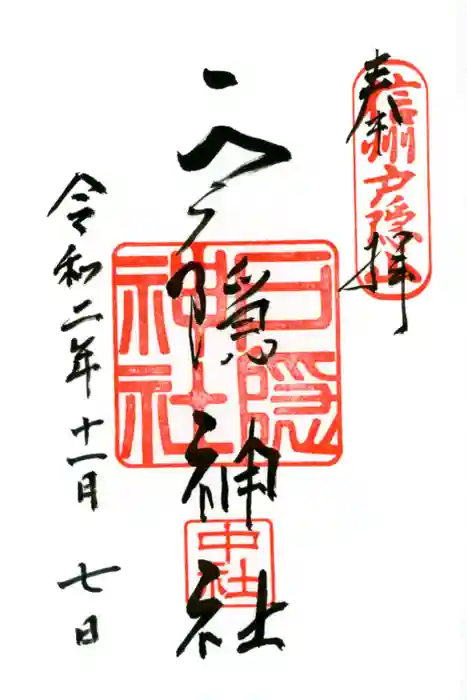 奉拝
信州戸隠山
戸隠神社
戸隠神社
中社
令和二年十一月七日